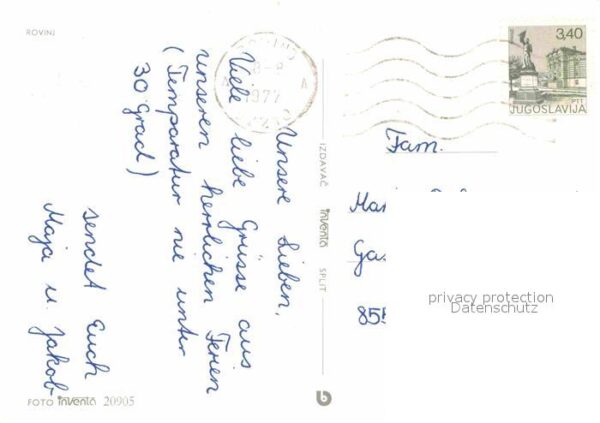 ROVINJ
Unsere Lieben,
Viele liebe Grüsse aus
unseren herrlichen Ferien
(Temperatur nie unter
30 Grad)
sendet Euch
Maja u. Jakob
FOTO inventa 20905
IZDAVAČ inventa SPLIT
1977
3,40
PTT
JUGOSLAVIJA
Fam.
Ga
855
privacy protection
Datenschutz